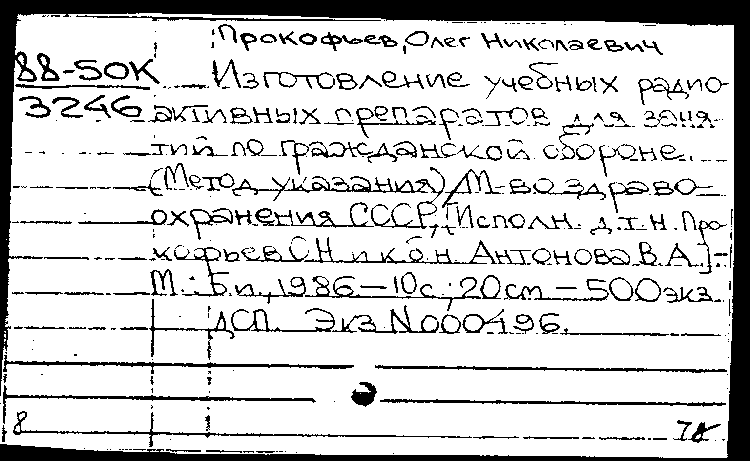 Прокофьев, Олег Николаевич
88-50К Изготовление учебных радио-
3246 активных препаратов для заня-
тий по гражданской обороне.
(Метод. указания)/М-во здраво-
охранения СССР, [Исполн. д.т.н. Про-
кофьев О.Н и к б н. Антонова В.А.].-
М.: Б.и., 1986 - 10с; 20см - 500экз.
ДСП. Экз N000496.
8